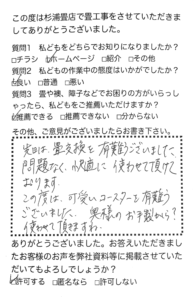 この度は杉浦畳店で畳工事をさせていただきま
してありがとうございました。
質問1 私どもをどちらでお知りになりましたか?
□チラシ ☑ホームページ □紹介 □その他
質問2 私どもの作業中の態度はいかがでしたか?
☑良い □普通 □悪い
質問3 畳や襖、障子などでお困りの方がいらっし
ゃったら、私どもをご推薦いただけますか?
☑推薦できる □推薦できない □分からない
その他、ご意見がございましたらお書き下さい。
先日は、畳交換を有難うございました
問題なく、快適に使わせて頂いて
おります。
この度は、可愛いコースターを有難う
ございました。奥様のお手製かしら?
使わせて頂きますね。
ありがとうございました。お答えいただきまし
たお客様のお声を弊社資料等に掲載させていた
だいてもよろしいでしょうか?
☑許可する □匿名なら □許可しない